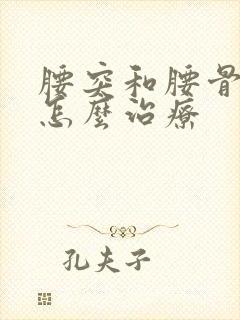 腰突和腰骨
怎麼治療
孔夫子